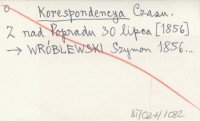 Korespondencya Czasu.
Z nad Popradu 30 lipca [1856]
→ WRÓBLEWSKI Szymon 1856...